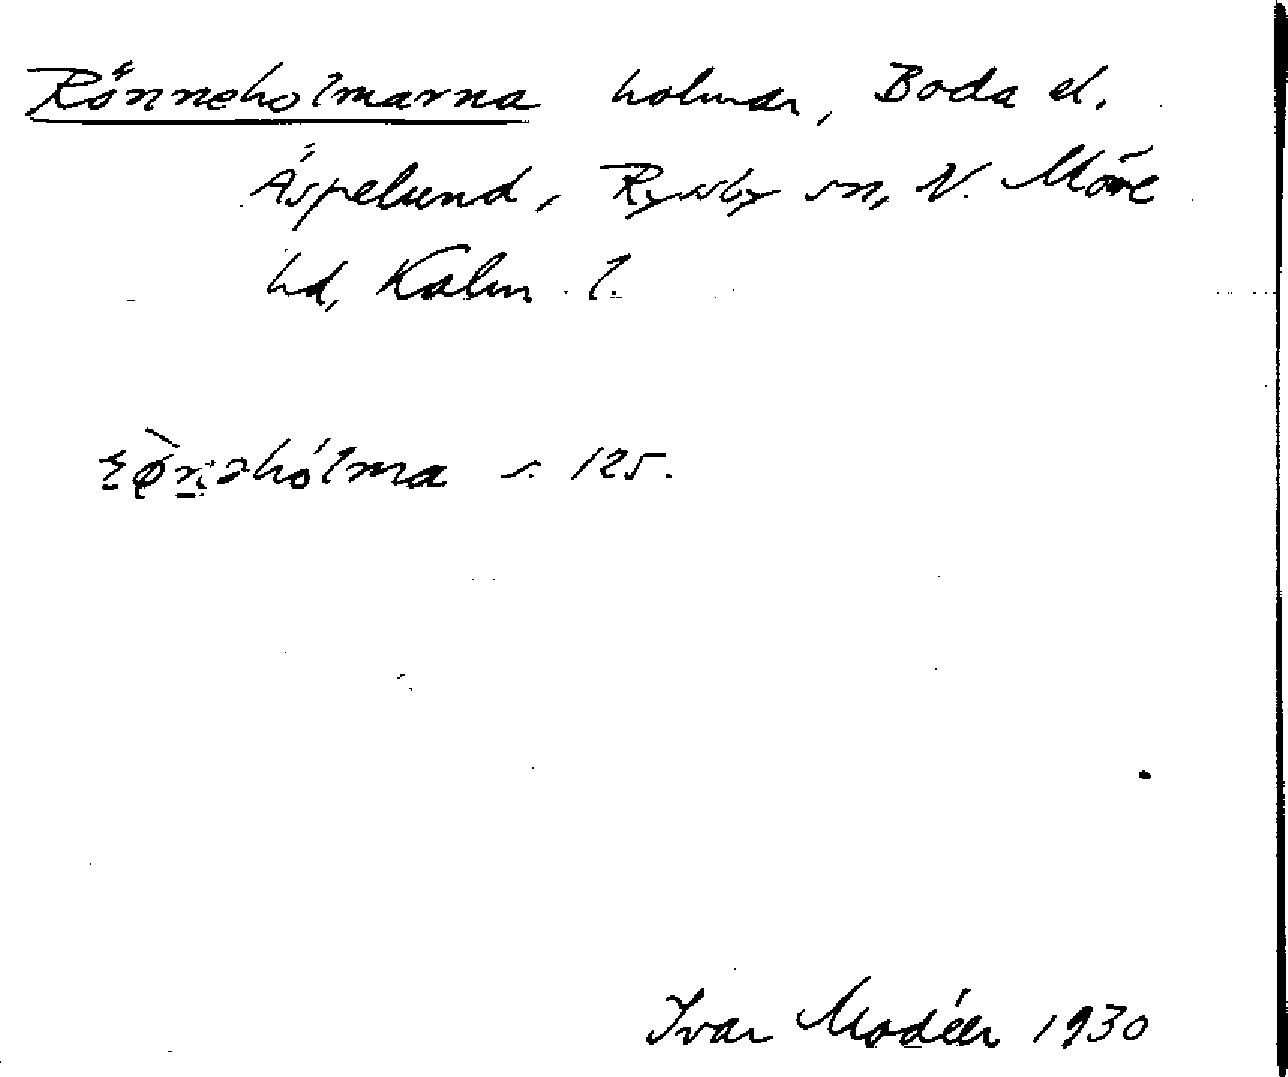 Rönneholmarna holmar, Boda el.
Äspelund, Ryssby sn, N. Möre
hd, Kalm. l.
s. 125.
Ivar Modéer 1930